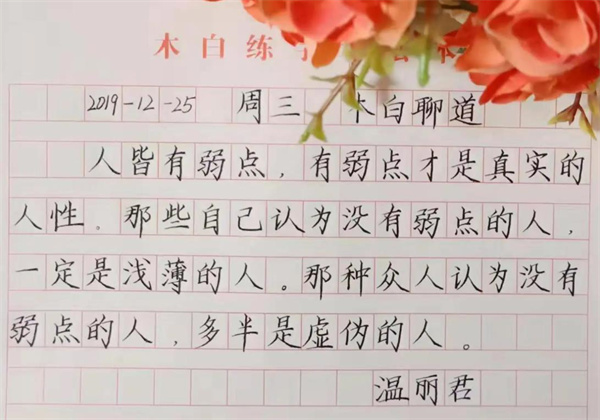 木白练
2019-12-25 周三 木白聊道
人皆有弱点，有弱点才是真实的
人性。那些自己认为没有弱点的人，
一定是浅薄的人。那种众人认为没有
弱点的人，多半是虚伪的人。
温丽君